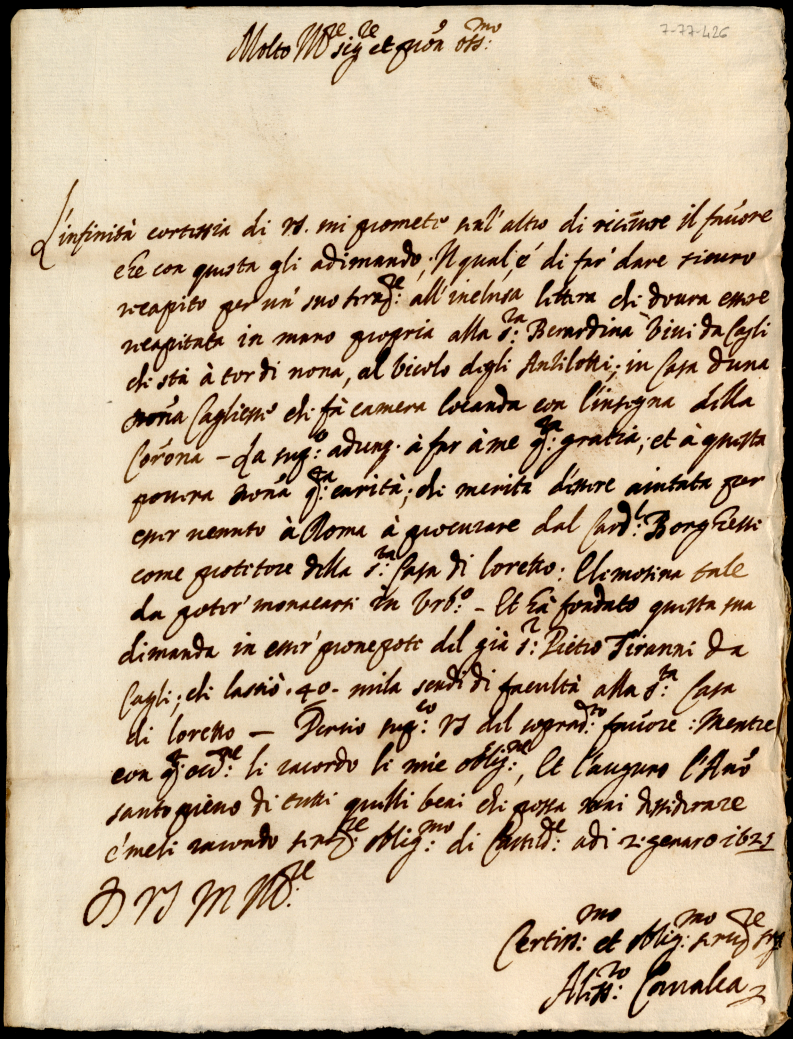 7-77-426
Molto Ill.re sig.re et pron oss.mo
L'infinità cortessia di VS. mi promete sul'altro di riceuere il fauore
che con questa gli adimando; Il qual'è di far' dare sicuro
recapito per un' suo serure: all'inclusa littera che dourà essere
recapitata in mano propria alla s.ra Berardina Viui da Cagli
che stà à tor di nona, al Vicolo degli Anzilotti; in Casa d'una
nona Cagliese che fà camera locanda con l'insegna della
Corona – La sup.co adunq. à far à me q.ta gratia; et à questa
pouera dona q.ta carità; che merita d'essere aiutata per
esser uenuta à Roma à procurare dal Card.l Borghese
come protetore della s.ta Casa di loreto: Elemosina tale
da poter' monacarsi in Vrb.o – Et hà fondato questa sua
dimanda in esser' pronepote del già s.r Pietro Tiranni da
Cagli; che lassiò .40. mila scudi di facultà alla s.ta Casa
di loreto — Perciò sup.co VS del soprad.to fauore: Mentre
con q.ta occ.ne li racordo le mie oblig.ni, Et l'auguro l'Ano
santo pieno di tutti quelli beni che possa mai desiderare
e meli racomdo seru.re oblig.mo di Casteld.te adi 2. genaro 1625
D VS M Ill.re
Certiss.mo et oblig.mo seru.re
Aless.ro Corralea